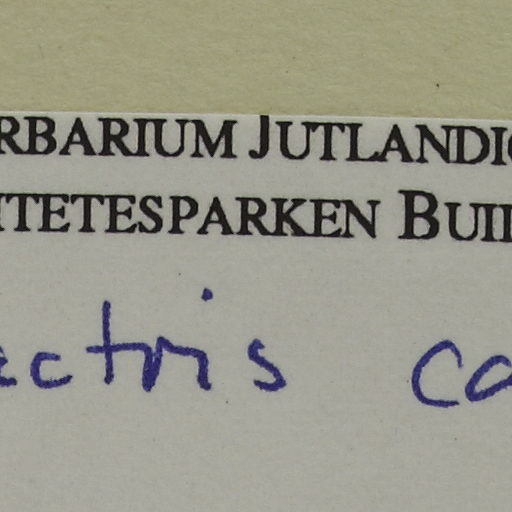 RBARIUM JUTLANDI
ITETESPARKEN BUI
actris ca